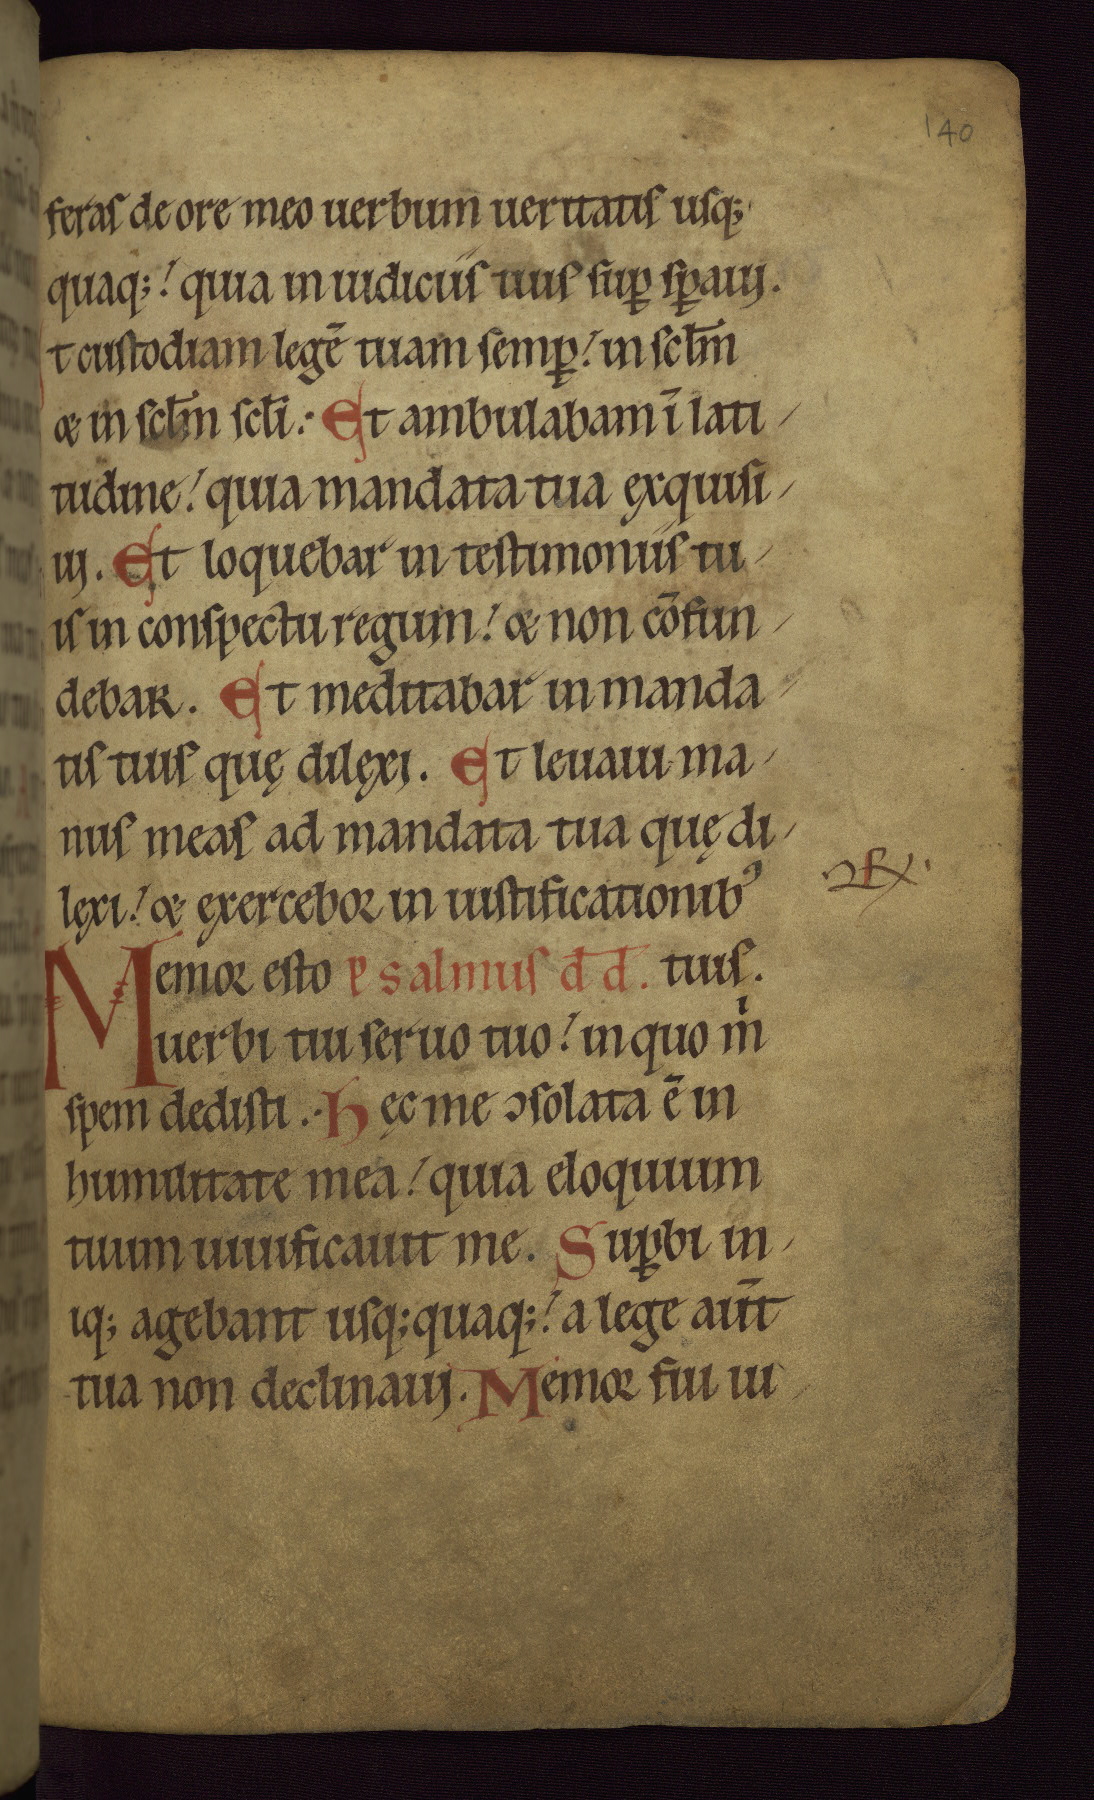 140
feras de ore meo uerbum ueritatis usq;
quaq; ! quia in iudiciis tuis sup̲ sp̲auj.
t custodiam legē tuam semp̲ ! in sclm̄
& in sclm̄ scli̅. Et ambulabam ī lati
tudine ! quia mandata tua exquisi
uj. Et loquebar in testimoniis tu
is in conspectu regum ! & non cōfun
debar. Et meditabar in manda
tis tuis quę dilęxj. Et leuaui ma
nus meas ad mandata tua quę di
lęxi ! & exercebor in iustificationibꝰ
Memor esto psalmus d̄ d̄. tuis.
uerbi tui seruo tuo ! in quo m̊
spem dedisti. Hęc me ɔsolata ē in
humilitate mea ! quia eloquium
tuum uiuificauit me. Sup̲bi in
iq; agebant usq;quaq; ! a lege aut̄
tua non declinauj. Memor fui iu